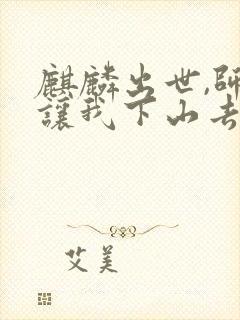 麒麟出世,師
讓我下山去
艾美